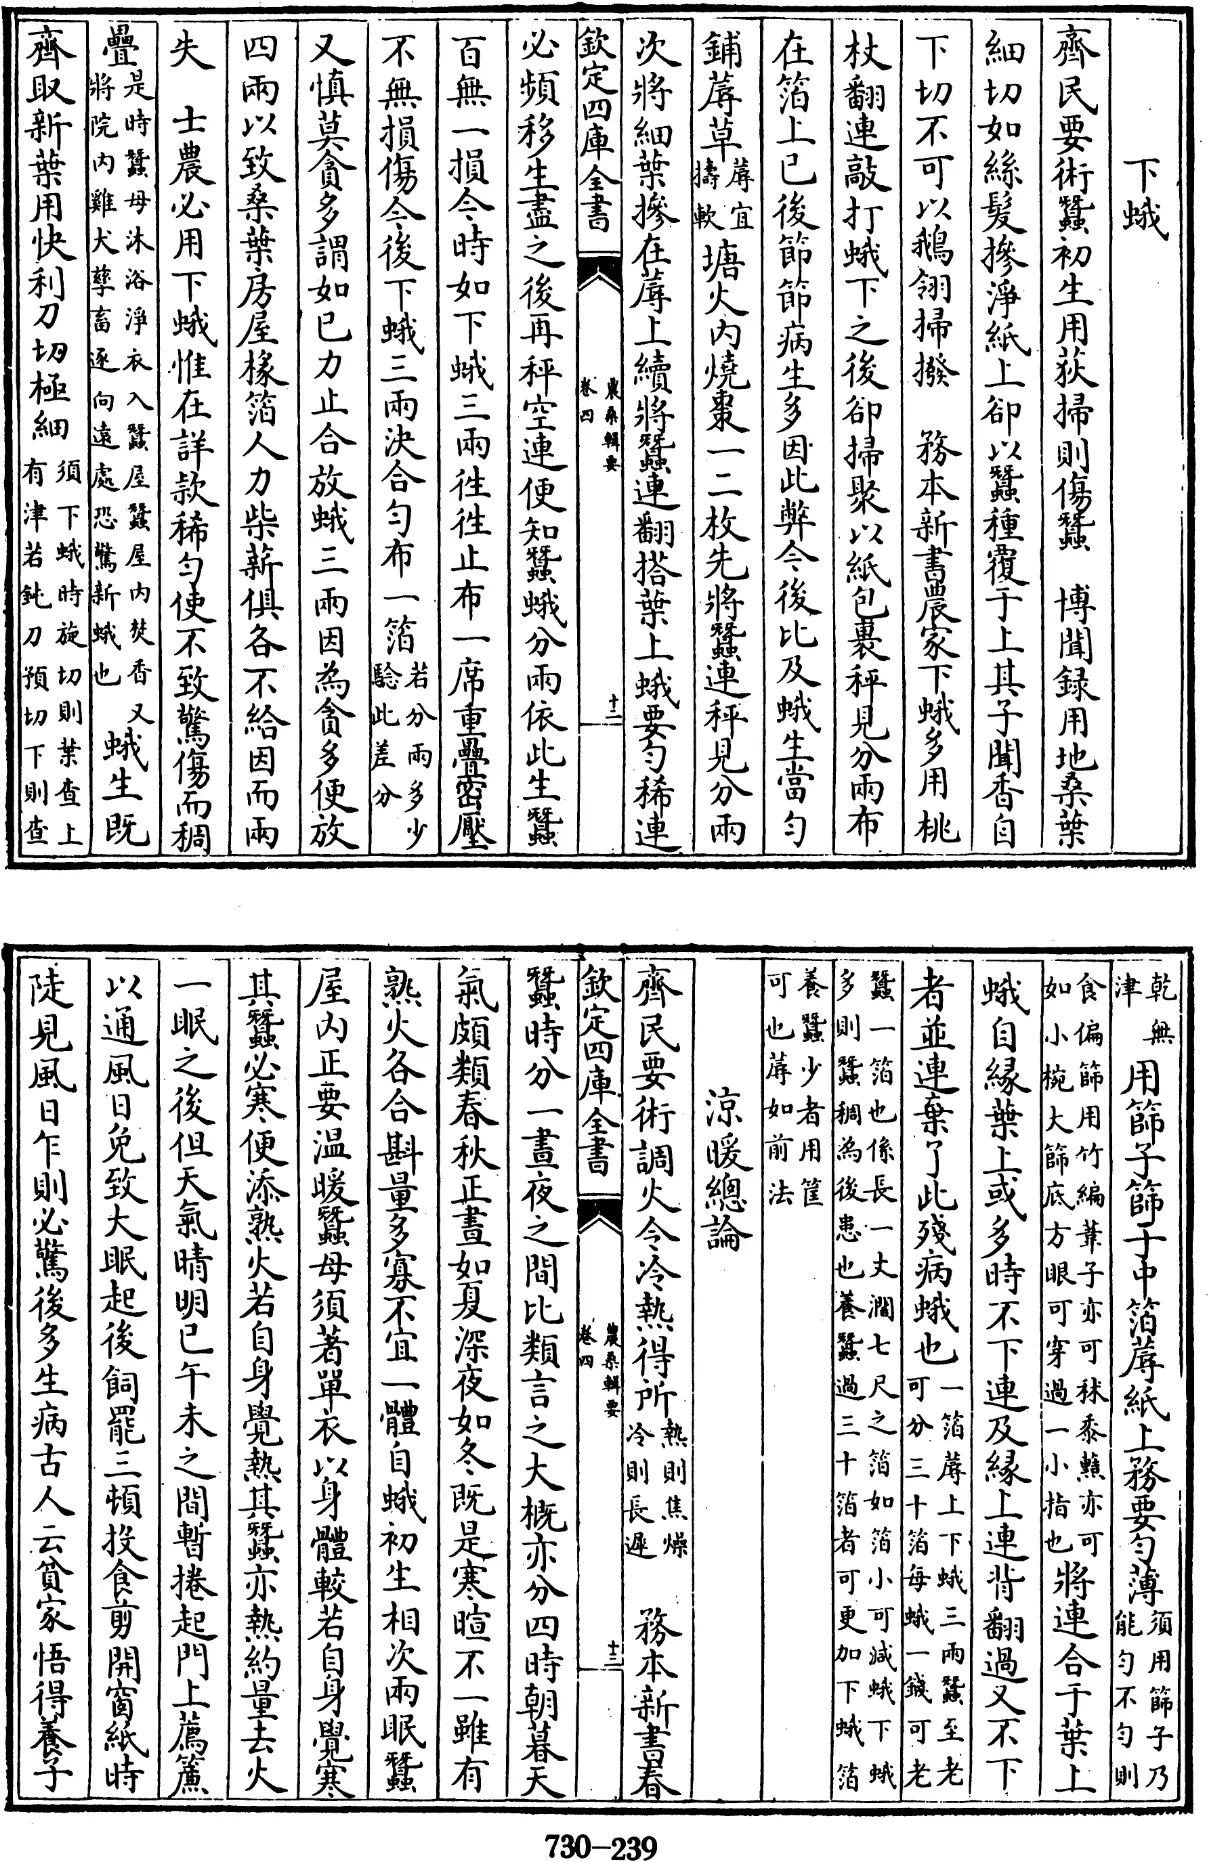 下蛾
齊民要術蠶初生用荻掃則傷蠶　博聞録用地桑葉
細切如絲髮摻淨紙上卻以蠶種覆于上其子聞香自
下切不可以鵝翎掃撥　務本新書農家下蛾多用桃
杖翻連敲打蛾下之後卻掃聚以紙包裹秤見分兩布
在箔上已後節節病生多因此弊今後比及蛾生當勻
鋪蓐草蓐宜擣軟塘火内燒棗一二枚先將蠶連秤見分兩
次將細葉摻在蓐上續將蠶連翻搭葉上蛾要勻稀連
欽定四庫全書　農桑輯要卷四　十二
必頻移生盡之後再秤空連便知蠶蛾分兩依此生蠶
百無一損今時如下蛾三兩往往止布一席重疊密壓
不無損傷今後下蛾三兩決合勻布一箔若分兩多少驗此差分
又慎莫貪多謂如已力止合放蛾三兩因為貪多便放
四兩以致桑葉房屋椽箔人力柴薪俱各不給因而兩
失　士農必用下蛾惟在詳款稀勻使不致驚傷而稠
疊是時蠶母沐浴淨衣入蠶屋蠶屋内焚香又將院内雞犬孳畜逐向遠處恐驚新蛾也蛾生既
齊取新葉用快利刀切極細須下蛾時旋切則葉查上有津若鈍刀預切下則查
乾無津用篩子篩于中箔蓐紙上務要勻薄須用篩子乃能勻不勻則
食偏篩用竹編葦子亦可秫黍蘸亦可如小椀大篩底方眼可穿過一小指也將連合于葉上
蛾自緣葉上或多時不下連及緣上連背翻過又不下
者並連棄了此殘病蛾也一箔蓐上下蛾三兩蠶至老可分三十箔每蛾一錢可老
蠶一箔也係長一丈濶七尺之箔如箔小可減蛾下蛾多則蠶稠為後患也養蠶過三十箔者可更加下蛾箔
養蠶少者用筐可也蓐如前法
涼暖總論
齊民要術調火令冷熱得所熱則焦燥冷則長遲　務本新書春
欽定四庫全書　農桑輯要卷四　十三
蠶時分一晝夜之間比類言之大概亦分四時朝暮天
氣頗類春秋正晝如夏深夜如冬既是寒暄不一雖有
熟火各合斟量多寡不宜一體自蛾初生相次兩眠蠶
屋内正要温暖蠶母須著單衣以身體較若自身覺寒
其蠶必寒便添熟火若自身覺熱其蠶亦熱約量去火
一眠之後但天氣晴明巳午未之間暫捲起門上薦簾
以通風日免致大眠起後飼罷三頓投食剪開窗紙時
陡見風日乍則必驚後多生病古人云貧家悟得養子
730-239